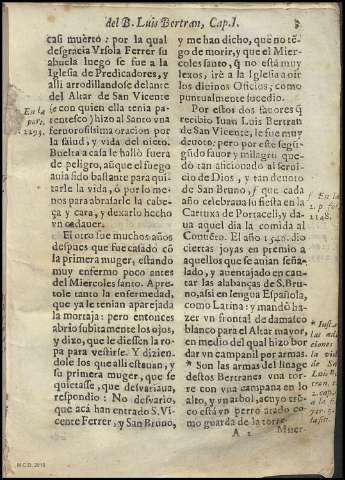 del B. Luis Bertran, Cap. I.
casi muerto: por la qual
desgracia Vrsola Ferrer su
abuela luego se fue a la
Iglesia de Predicadores, y
alli arrodillandose delante
del Altar de San Vicente
(e con quien ella tenia pa-
rentesco) hizo al Santo vna
feruorosissima oracion por
la salud, y vida del nieto.
Buelta a casa le hallò fuera
de peligro, aũque el fuego
auia sido bastante para qui-
tarle la vida, ò por lo me-
nos para abrasarle la cabe-
ça y cara, y dexarlo hecho
vn cadauer.
El otro fue muchos años
despues que fue casado cõ
la primera muger, estando
muy enfermo poco antes
del Miercoles santo. Apre-
tole tanto la enfermedad,
que ya le tenian aparejada
la mortaja: pero entonces
abriò subitamente los ojos,
y dixo, que le diessen la ro-
pa para vestirse. Y dizien-
dole los que alli estauan, y
su primera muger, que se
quietasse, que desvariaua,
respondio: No desvario,
que acá han entrado S. Vi-
cente Ferrer, y San Bruno,
En la
part.
2293.
y me han dicho, que no tẽ-
go de morir, y que el Mier-
coles santo, q̃ no está muy
lexos, irè a la Iglesia a oir
los diuinos Oficios; como
puntualmente sucedio.
Por estos dos fauores q̃
recibio Iuan Luis Bertran
de San Vicente, le fue muy
deuoto; pero por este segũ-
do fauor y milagro que-
dò tan aficionado al serui-
cio de Dios, y tan deuoto
de San Bruno, ſ que cada
año celebraua su fiesta en la
Cartuxa de Portaceli, y da-
ua aquel dia la comida al
Conuẽto. El año 1540. dio
ciertas joyas en premio a
aquellos que se auian seña-
lado, y auentajado en can-
tar las alabanças de S. Bru-
no, assi en lengua Española,
como Latina: y mandò ha-
zer vn frontal de damasco
blanco para el Altar mayor,
en medio del qual hizo bor-
dar vn campanil por armas.
* Son las armas del linage
destos Bertranes vna tor-
re con vna campana en lo
alto, y vn arbol, a cuyo trõ-
co está vn perro atado co-
mo guarda de la torre.
ſ En la
2. p. fo.
2148.
las adi-
ciones
la vida
de San
Luis B.
2. cap.
A 2 Muer-
M.C.D. 2018